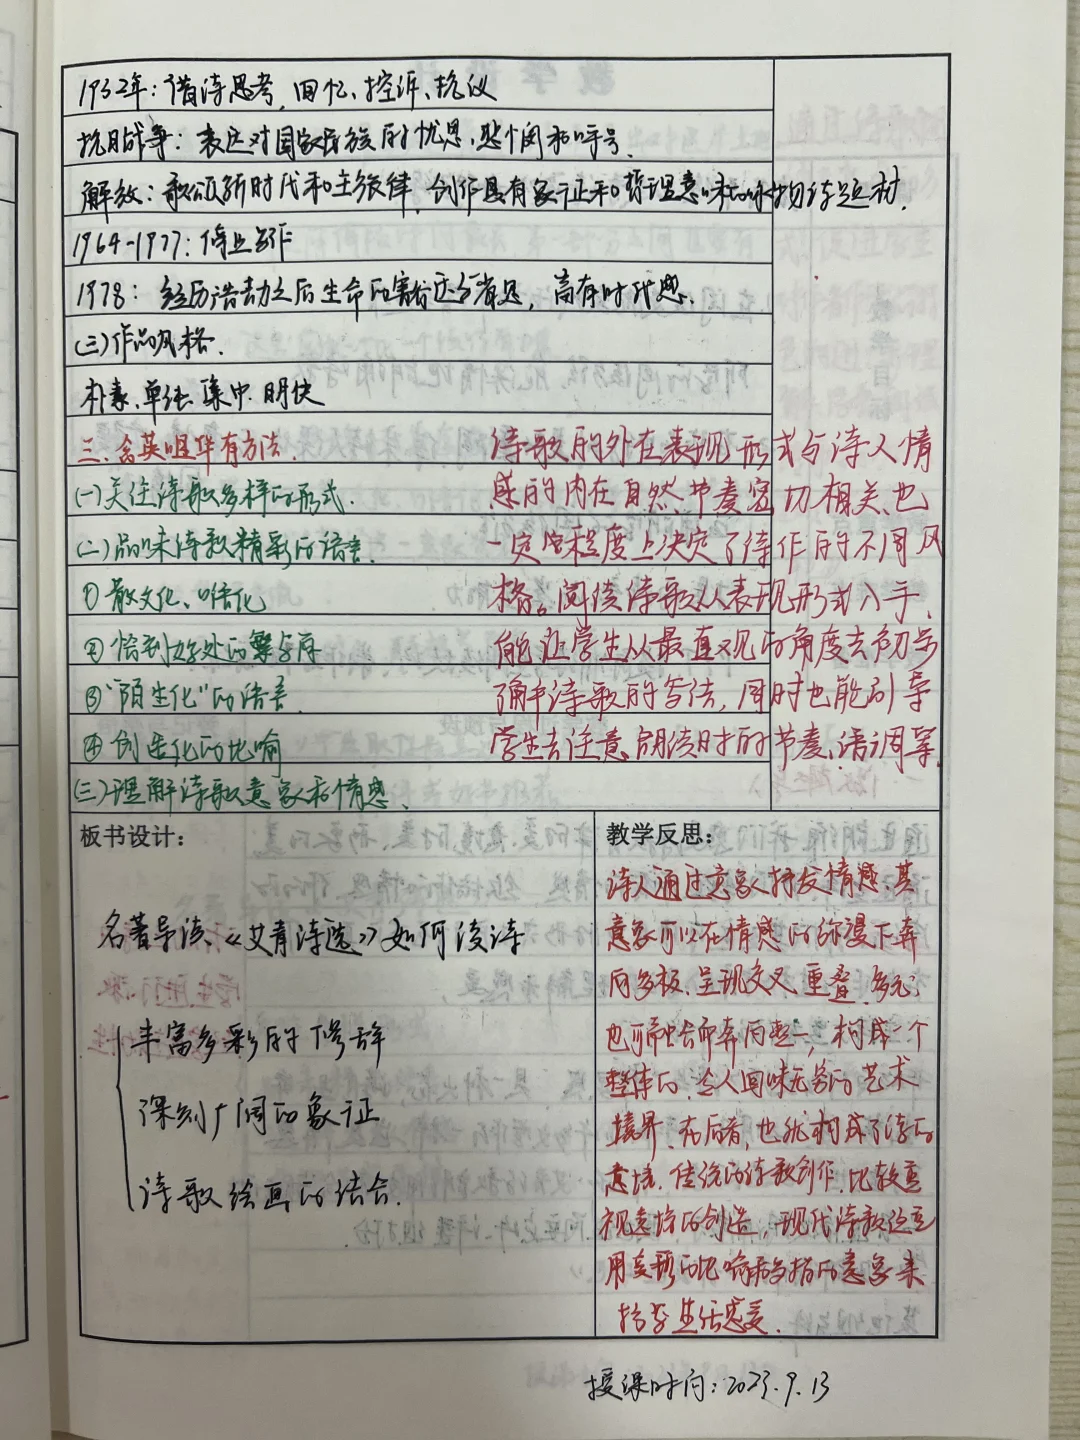 1932年：借诗思考，回忆、控诉、抗议
抗日战争：表达对国家民族的忧思，悲悯和呼号。
解放：歌颂新时代和主旋律，创作具有象征和哲理意味的咏物诗题材。
1964-1977：停止写作
1978：经历浩劫之后生命的省思，富有时代感。
(三)作品风格.
朴素、单纯、集中、明快
三、含英咀华有方法.
(一)关注诗歌多样的形式.
(二)品味诗歌精彩的语言.
①散文化、口语化
②恰到好处的繁与简
③“陌生化”的语言
④创造化的比喻
(三)理解诗歌意象和情感.
诗歌的外在表现形式与诗人情
感的内在自然节奏密切相关，也
一定程度上决定了诗作的不同风
格。阅读诗歌从表现形式入手，
能让学生从最直观的角度去初步
了解诗歌的写法，同时也能引导
学生去注意朗读时的节奏、语调等.
板书设计：
名著导读、《艾青诗选》如何读诗
丰富多彩的修辞
深刻广阔的象征
诗歌绘画的结合.
教学反思：
诗人通过意象抒发情感，其
意象可以在情感的弥漫下奔
向多极、呈现交叉、重叠、多元；
也可融会而奔向整一，构成一个
整体的、令人回味无穷的艺术
境界.在后者，也就构成了诗的
意境.传统的诗歌创作，比较重
视意境的创造，现代诗歌注重
用美丽的比喻和多指的意象来
抒写生活感受.
授课时间：2023.9.13